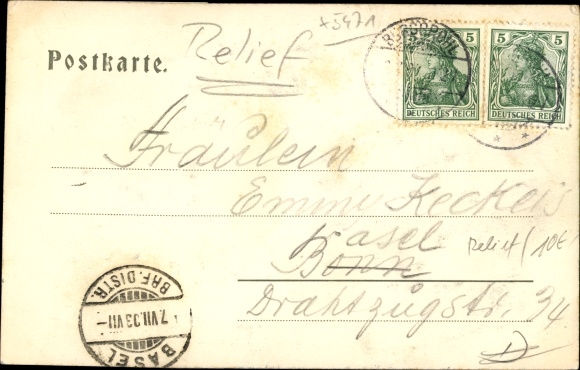 +5471
Postkarte.
Relief
5 5
DEUTSCHES REICH DEUTSCHES REICH
Fräulein
Emmi Keckeis
Basel
Relief (10€)
Bonn
Drahtzugstr. 34
D
BRF. DISTR.
7.VII.03.VII-
BASEL